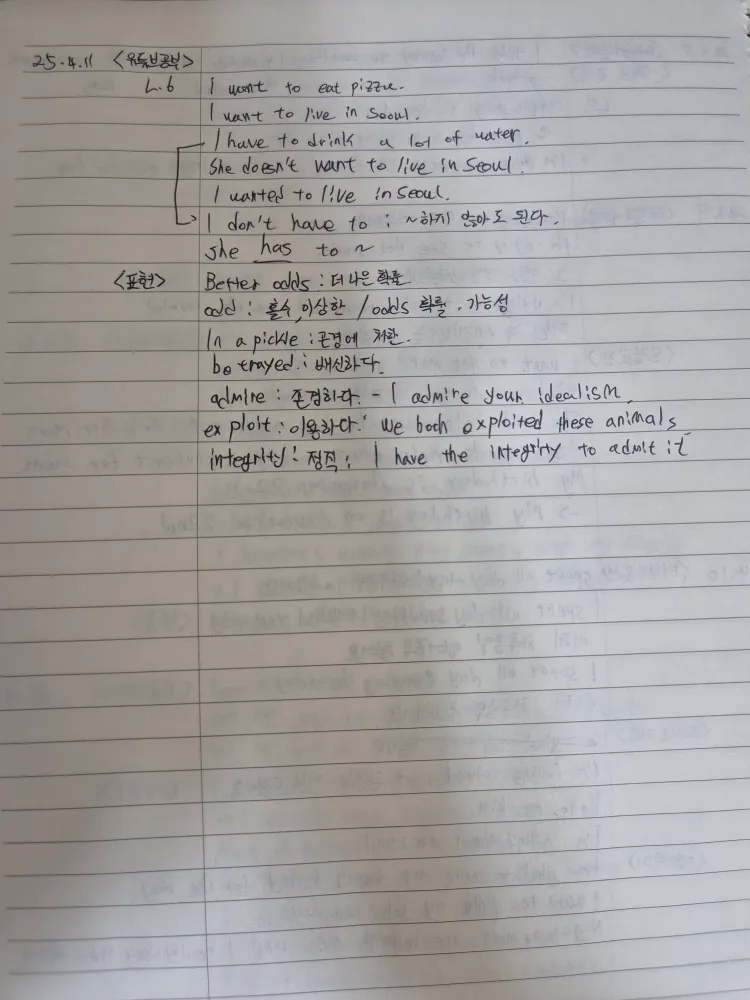 25.4.11 <유튜브공부>
L.6 I want to eat pizza.
I want to live in Seoul.
I have to drink a lot of water.
She doesn't want to live in Seoul.
I wanted to live in Seoul.
I don't have to : ~하지 않아도 된다.
She has to ~
<표현> Better odds : 더 나은 확률
odd : 홀수, 이상한 / odds 확률, 가능성
In a pickle : 곤경에 처한.
betrayed : 배신하다.
admire : 존경하다. - I admire your idealism.
exploit : 이용하다. : We both exploited these animals
integrity : 정직 : I have the integrity to admit it